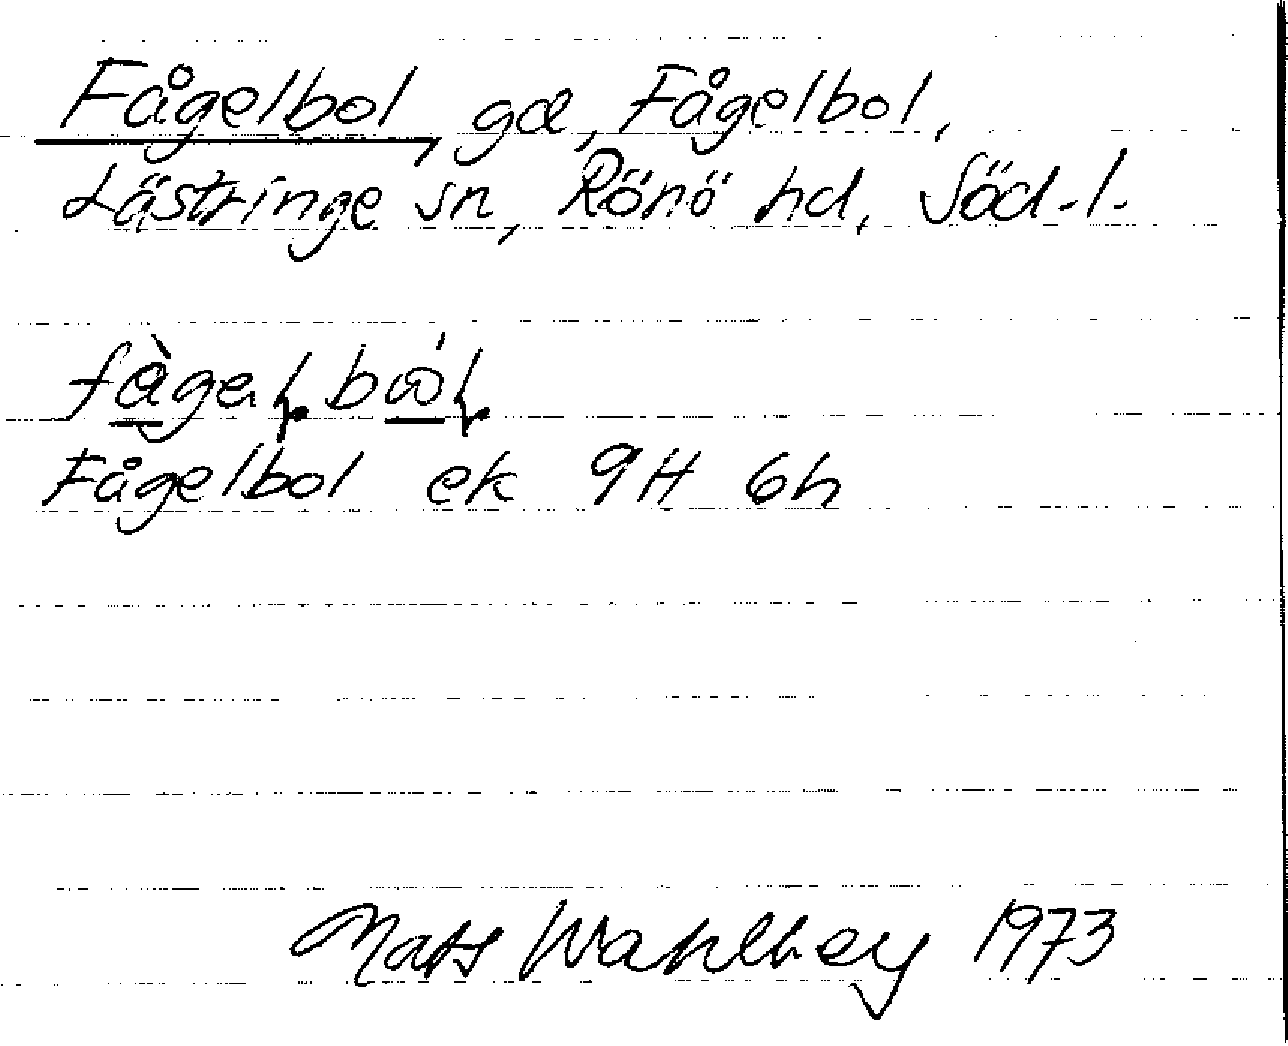 Fågelbol, gd, Fågelbol,
Lästringe sn, Rönö hd, Söd-l.
Fågelbol ek 9H 6h
Mats Wahlberg 1973